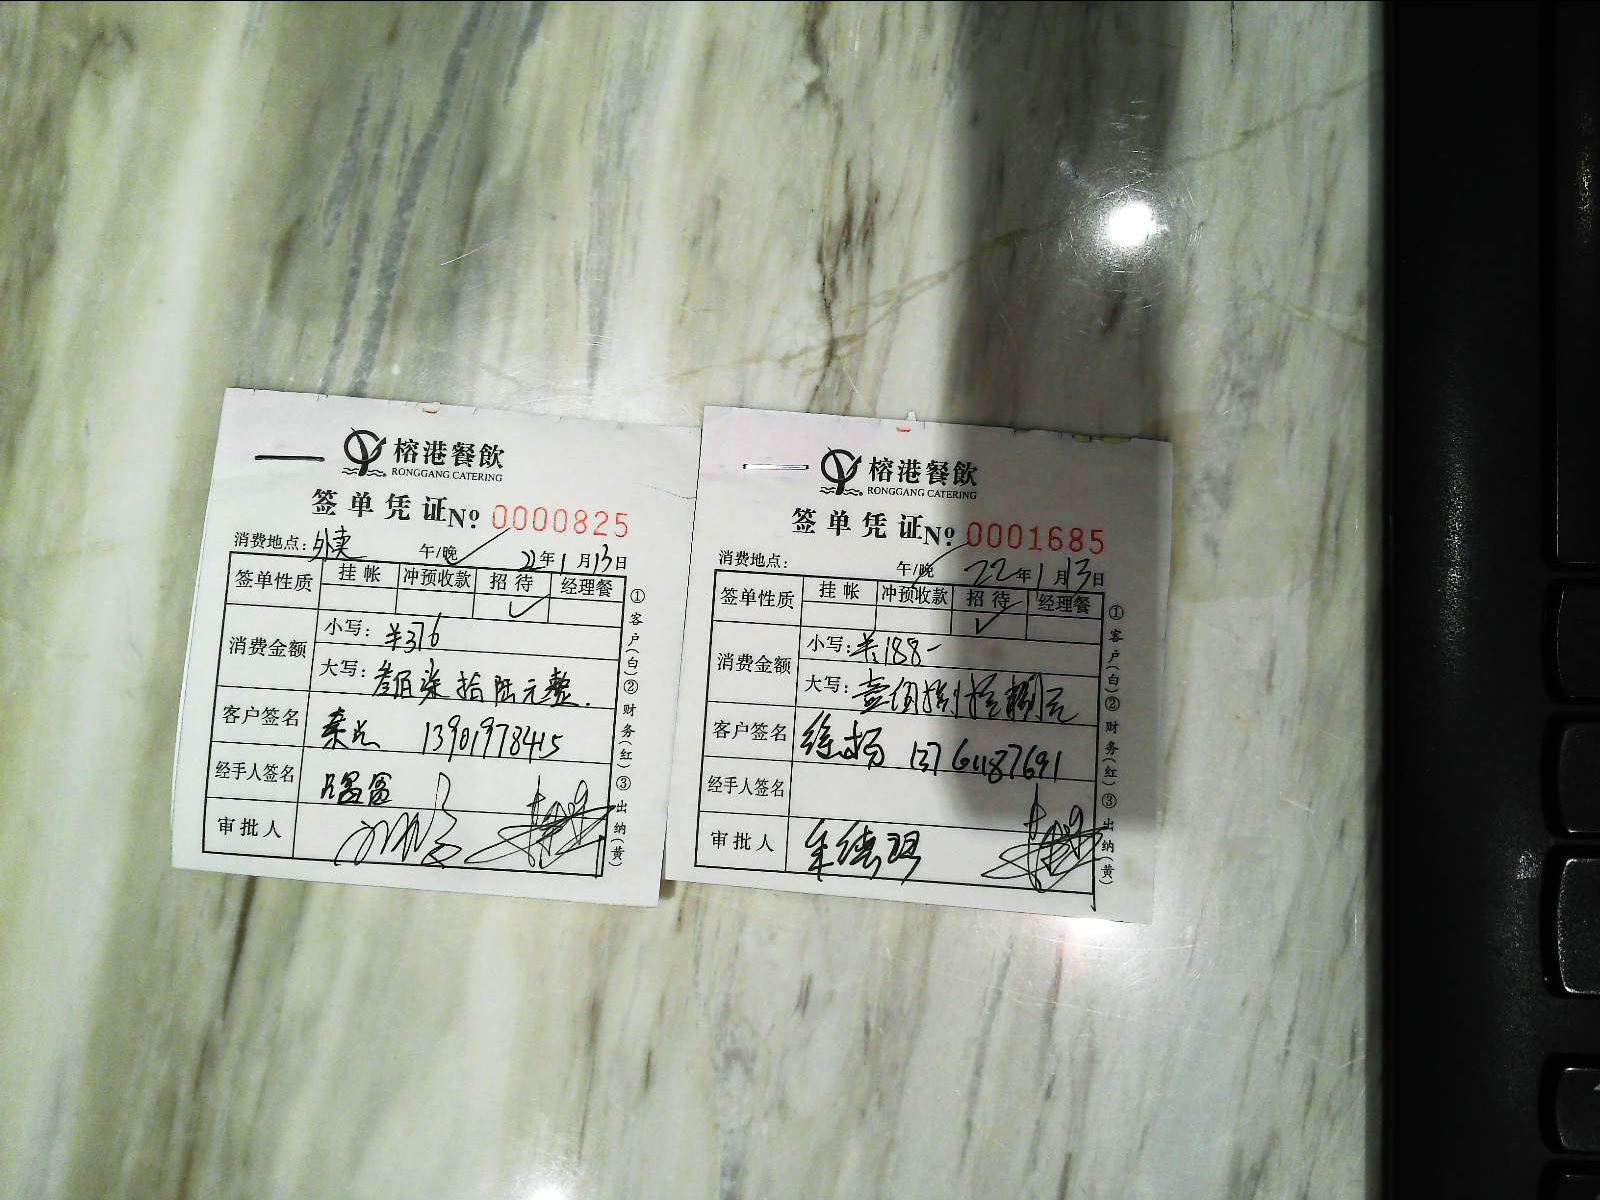 榕港餐飲
RONGGANG CATERING
签单凭证No 0000825
消费地点：外卖 午/晚 22年1月13日
签单性质 挂帐 冲预收款 招待 经理餐
✓
消费金额 小写：¥376
大写：叁佰柒拾陆元整.
客户签名 13901978415
经手人签名
审批人
①客户(白)②财务(红)③出纳(黄)
榕港餐飲
RONGGANG CATERING
签单凭证No 0001685
消费地点： 午/晚 22年1月13日
签单性质 挂帐 冲预收款 招待 经理餐
✓
消费金额 小写：¥188-
大写：壹佰捌拾捌元
客户签名 徐扬 13761187691
经手人签名
审批人
①客户(白)②财务(红)③出纳(黄)